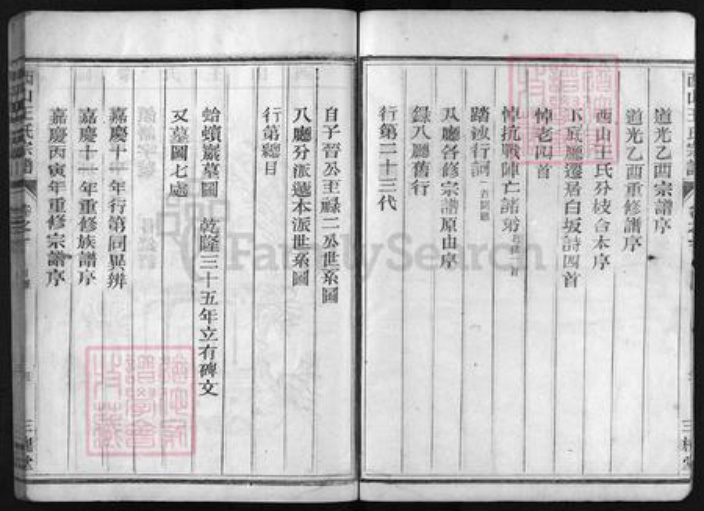 道光乙酉宗譜序
道光乙酉重修譜序
西山王氏分枝合本序
下廳遷居白坂詩四首
悼老四首
悼抗戰陣亡諸弟
踏波行詞
及廳各修宗譜原由序
錄八廳舊行
行第二十三代
自子晉公至祿二公世系圖
八廳分派遞本派世系圖
行第總目
蛤蟥巖墓圖 乾隆三十五年立有碑文
又墓圖七處
嘉慶十一年行第同異辨
嘉慶十一年重修族譜序
嘉慶丙寅年重修宗譜序
西山王氏宗譜
三槐堂
FamilySearch